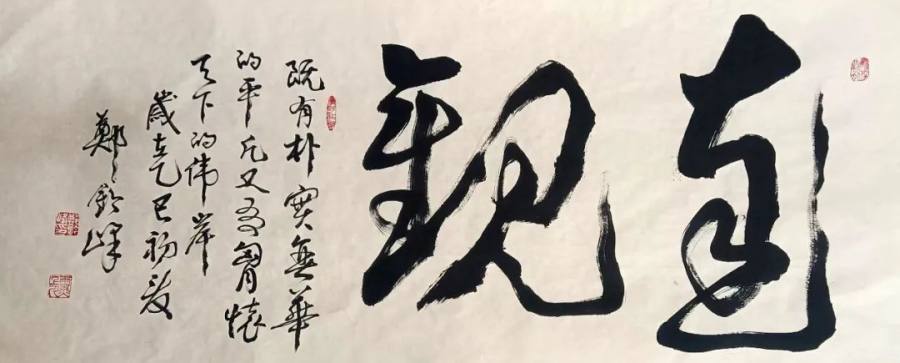 達觀
既有朴實無華
的平凡又有胸懷
天下的伟岸
歲在乙巳初夏
鄭钦峰